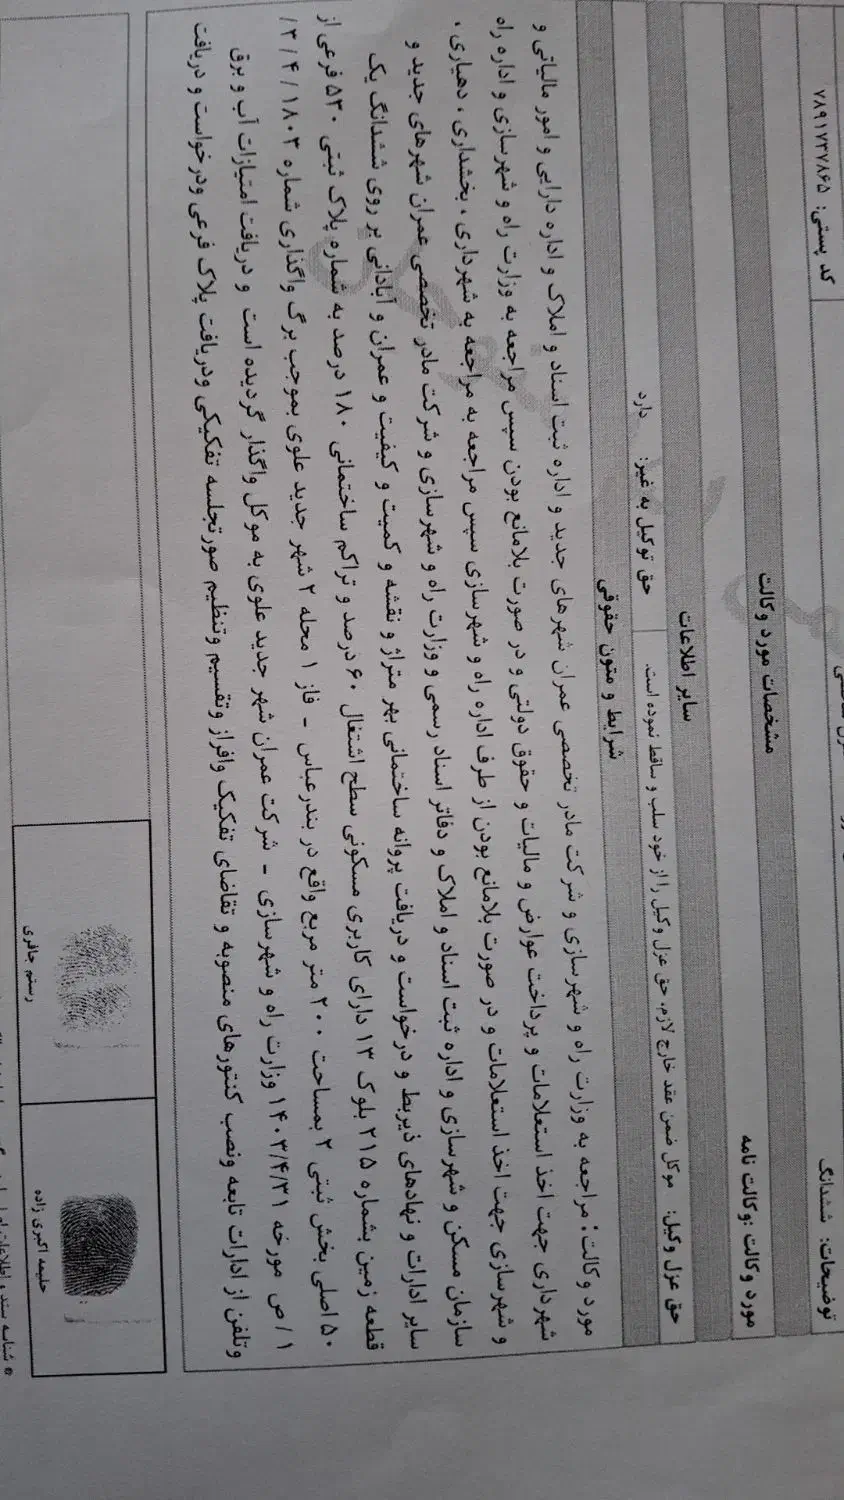 کد پستی: ۷۸۹۱۷۳۷۸۶۵
توضیحات: ششدانگ
مشخصات مورد وکالت
مورد وکالت :وکالت نامه
سایر اطلاعات
حق عزل وکیل: موکل ضمن عقد خارج لازم، حق عزل وکیل را از خود سلب و ساقط نموده است. حق توکیل به غیر: دارد
شرایط و متون حقوقی
مورد وکالت: مراجعه به وزارت راه و شهرسازی و شرکت مادر تخصصی عمران شهرهای جدید و اداره ثبت اسناد و املاک و اداره دارایی و امور مالیاتی و
شهرداری جهت اخذ استعلامات و پرداخت عوارض و مالیات و حقوق دولتی و در صورت بلامانع بودن سپس مراجعه به وزارت راه و شهرسازی و اداره راه
و شهرسازی جهت اخذ استعلامات و در صورت بلامانع بودن از طرف اداره راه و شهرسازی سپس مراجعه به مراجعه به شهرداری ، بخشداری ، دهیاری ،
سازمان مسکن و شهرسازی و اداره ثبت اسناد و املاک و دفاتر اسناد رسمی و وزارت راه و شهرسازی و شرکت مادر تخصصی عمران شهرهای جدید و
سایر ادارات و نهادهای ذیربط و درخواست و دریافت پروانه ساختمانی بهر متراژ و نقشه و کمیت و کیفیت و عمران و آبادانی بر روی ششدانگ یک
قطعه زمین بشماره ۲۱۵ بلوک ۱۳ دارای کاربری مسکونی سطح اشتغال ۶۰ درصد و تراکم ساختمانی ۱۸۰ درصد به شماره پلاک ثبتی ۵۳۰ فرعی از
۵۰ اصلی بخش ثبتی ۲ بمساحت ۲۰۰ متر مربع واقع در بندرعباس - فاز ۱ محله ۲ شهر جدید علوی بموجب برگ واگذاری شماره ۱۸۰۳ / ۴ / ۳ /
۱ / ص مورخه ۱۴۰۳/۴/۳۱ وزارت راه و شهرسازی - شرکت عمران شهر جدید علوی به موکل واگذار گردیده است و دریافت امتیازات آب و برق
و تلفن از ادارات تابعه ونصب کنتورهای منصوبه و تقاضای تفکیک وافراز وتقسیم وتنظیم صورتجلسه تفکیکی ودریافت پلاک فرعی ودرخواست و دریافت
حلیمه اکبری زاده
رستم جافری